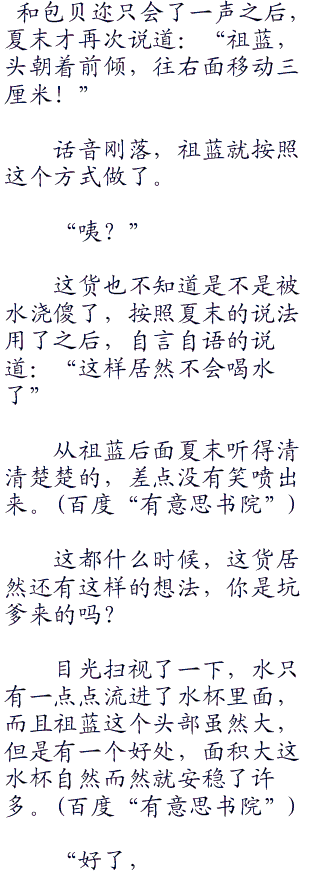 和包贝迩只会了一声之后，
夏末才再次说道：“祖蓝，
头朝着前倾，往右面移动三
厘米！”
话音刚落，祖蓝就按照
这个方式做了。
“咦？”
这货也不知道是不是被
水浇傻了，按照夏末的说法
用了之后，自言自语的说
道：“这样居然不会喝水
了”
从祖蓝后面夏末听得清
清楚楚的，差点没有笑喷出
来。(百度“有意思书院”)
这都什么时候，这货居
然还有这样的想法，你是坑
爹来的吗？
目光扫视了一下，水只
有一点点流进了水杯里面，
而且祖蓝这个头部虽然大，
但是有一个好处，面积大这
水杯自然而然就安稳了许
多。(百度“有意思书院”)
“好了，